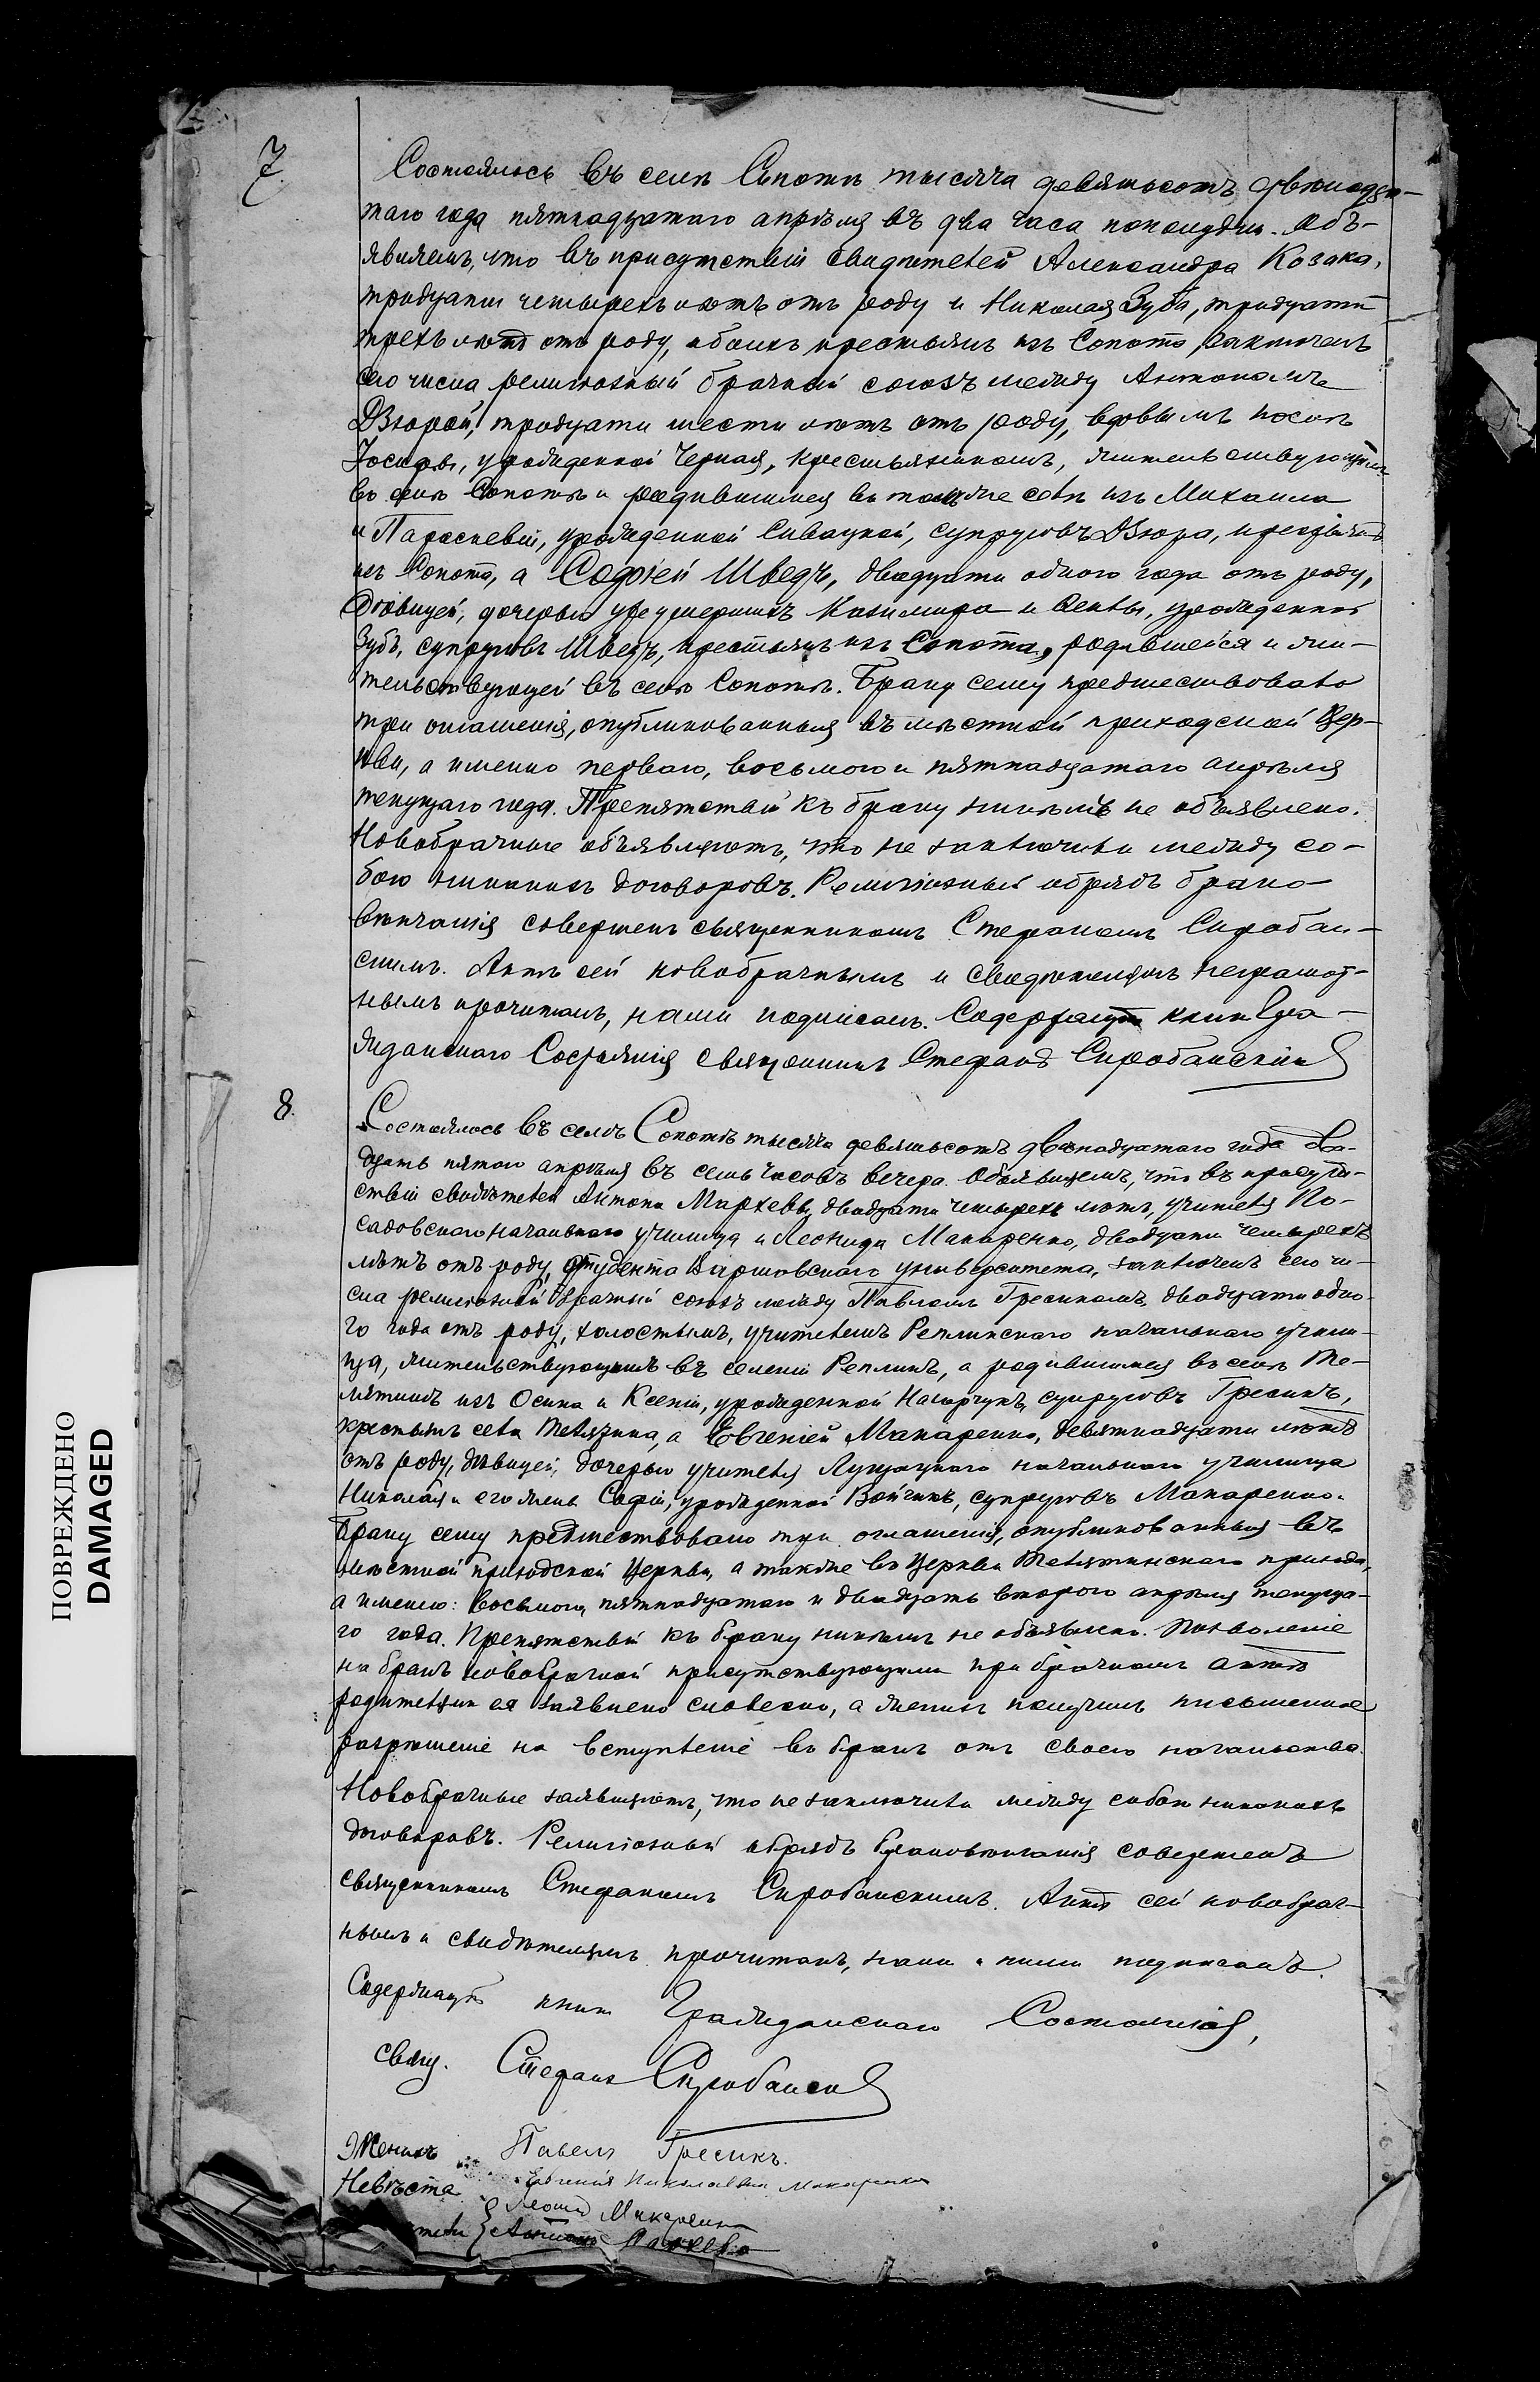 7
Состоялось въ селѣ Сопотѣ тысяча девятьсотъ двѣнадца-
таго года пятнадцатаго апрѣля въ два часа пополудни. Объ-
являемъ, что въ присутствіи свидѣтелей Александра Козака,
тридцати четырехъ лѣтъ отъ роду и Николая Зуба, тридцати
трехъ лѣтъ отъ роду, обоихъ крестьянъ изъ Сопота, заключенъ
сего числа религіозный брачный союзъ между Антономъ
Дзюрой, тридцати шести лѣтъ отъ роду, вдовымъ послѣ
урожденной Черная, крестьяниномъ, жительствующимъ
въ селѣ Сопотѣ и родившимся въ томъ же селѣ изъ Михаила
и Параскевіи, урожденной Сивацкой, супруговъ Дзюра, крестьянъ
изъ Сопота, а Софіей Шведъ, двадцати одного года отъ роду,
дѣвицей, дочерью уже умершихъ Казимира и урожденной
Зубъ, супруговъ Шведъ, крестьянъ изъ Сопота, родившейся и жи-
тельствующей въ селѣ Сопотѣ. Браку сему предшествовало
три оглашенія, опубликованныя въ мѣстной приходской Цер-
кви, а именно перваго, восьмого и пятнадцатаго апрѣля
текущаго года. Препятствій къ браку никѣмъ не объявлено.
Новобрачные объявляютъ, что не заключили между со-
бою никакихъ договоровъ. Религіозный обрядъ брако-
вѣнчанія совершенъ священникомъ Стефаномъ Скробан-
скимъ. Актъ сей новобрачнымъ и свидѣтелямъ неграмот-
нымъ прочитанъ, нами подписанъ. Содержащій книги Гра-
жданскаго Состоянія священникъ Стефанъ Скробанскій
8.
Состоялось въ селѣ Сопотѣ тысяча девятьсотъ двѣнадцатаго года два-
дцать пятаго апрѣля въ семь часовъ вечера. Объявляемъ, что въ присут-
ствіи свидѣтелей Антона двадцати четырехъ лѣтъ, учителя По-
садовскаго начальнаго училища и Леонида Макаренко, двадцати четырехъ
лѣтъ отъ роду, студента Варшавскаго университета, заключенъ сего чи-
сла религіозный брачный союзъ между Павломъ Гресикомъ, двадцати одно-
го года отъ роду, холостымъ, учителемъ Реплинскаго начальнаго учили-
ща, жительствующимъ въ селеніи Реплинѣ, а родившимся въ селѣ Те-
лятинѣ изъ Осипа и Ксеніи, урожденной супруговъ Гресикъ,
крестьянъ села Телятина, а Евгеніей Макаренко, девятнадцати лѣтъ
отъ роду, дѣвицей, дочерью учителя начальнаго училища
Николая и его жены Софіи, урожденной Войчикъ, супруговъ Макаренко.
Браку сему предшествовало три оглашенія, опубликованныя въ
мѣстной приходской Церкви, а также въ Церкви Телятинскаго прихода,
а именно: восьмого, пятнадцатаго и двадцать второго апрѣля текуща-
го года. Препятствій къ браку никѣмъ не объявлено. Позволеніе
на бракъ новобрачной присутствующими при брачномъ актѣ
родителями ея заявлено словесно, а женихъ получилъ письменное
разрѣшеніе на вступленіе въ бракъ отъ своего начальства.
Новобрачные заявляютъ, что не заключили между собою никакихъ
договоровъ. Религіозный обрядъ браковѣнчанія совершенъ
священникомъ Стефаномъ Скробанскимъ. Актъ сей новобрач-
нымъ и свидѣтелямъ прочитанъ, нами и ними подписанъ.
Содержащій книги Гражданскаго Состоянія,
свящ. Стефанъ Скробанскій
Женихъ Павелъ Гресикъ.
Невѣста Евгенія Николаевна Макаренко
Леонид Макаренко
Антонъ
ПОВРЕЖДЕНО
DAMAGED